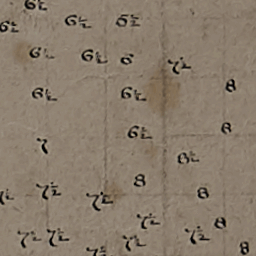 6½
6½ 6½ 6½
6½ 6½ 6 7½
6½ 6½ 8
6½ 8
7 8½
8
7½ 7½ 7½ 8
7½ 8
7½ 7½ 7½ 7½
7½ 8